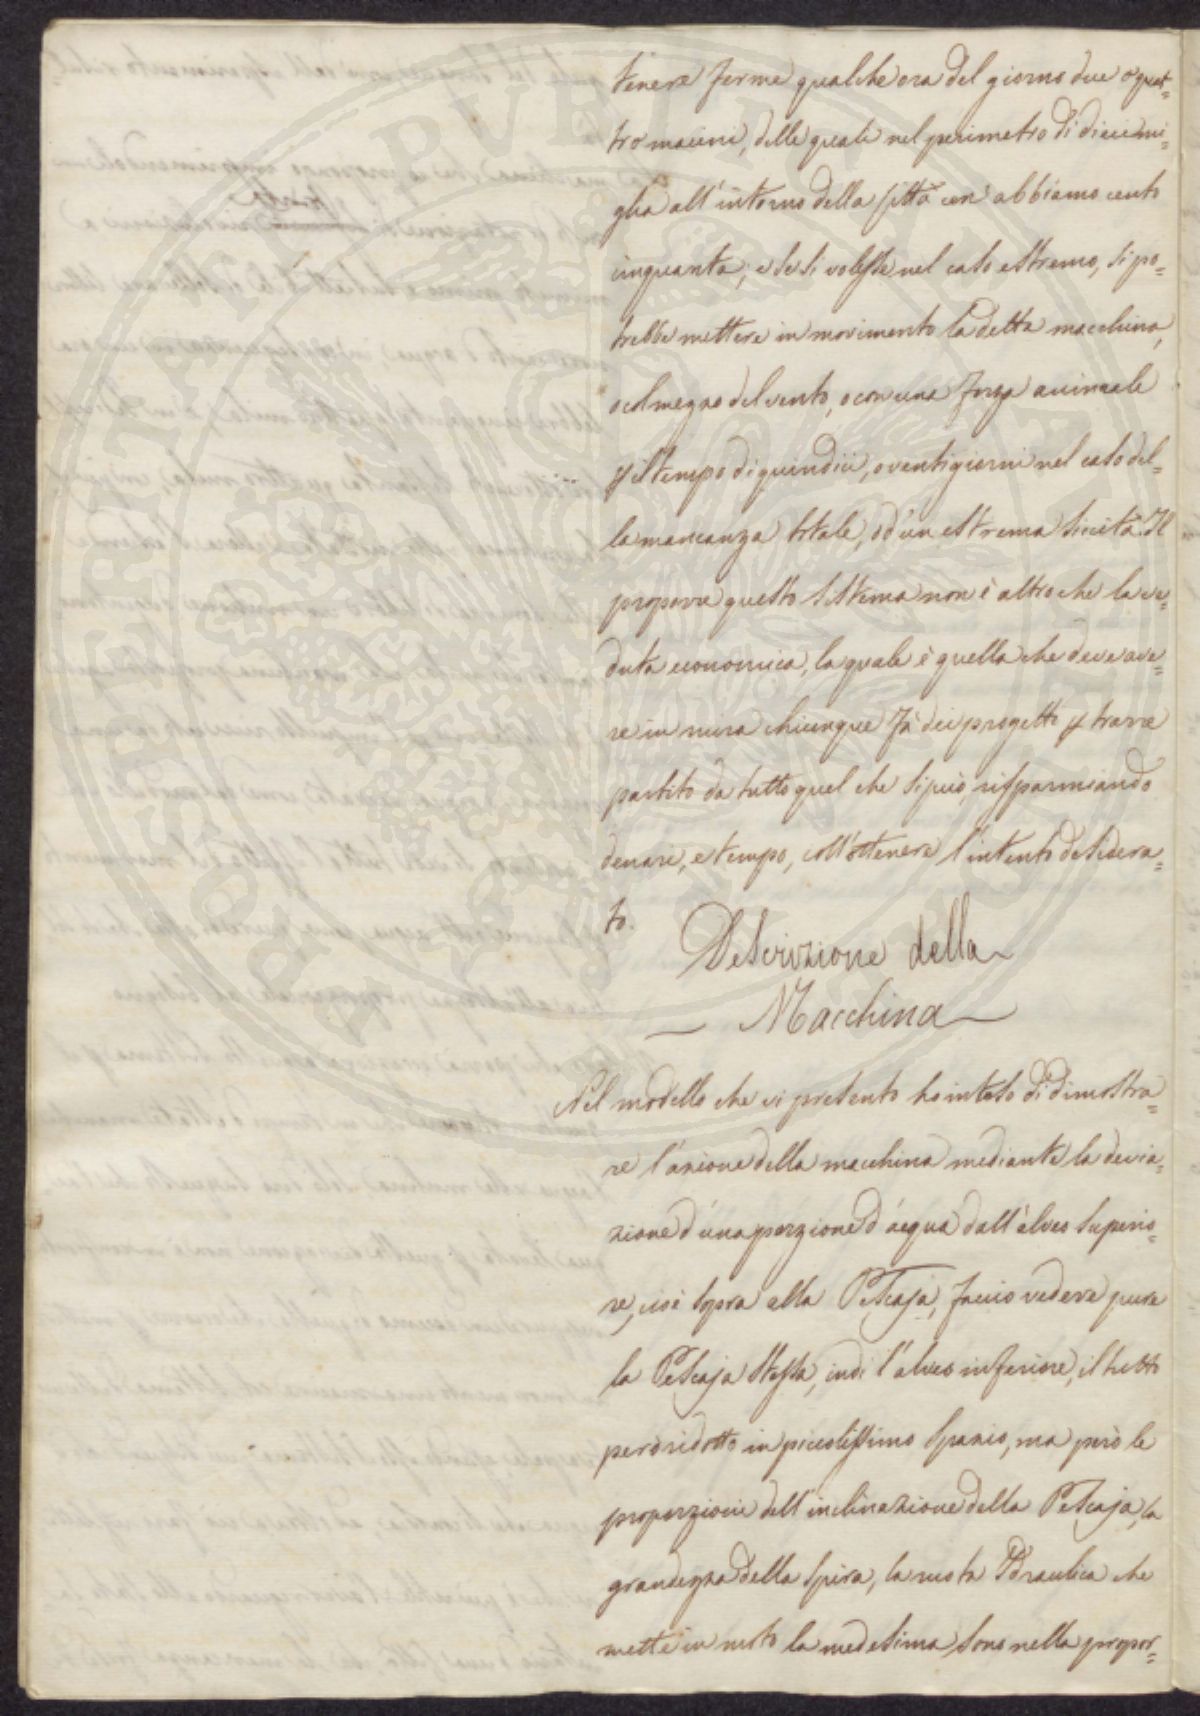 tenere ferme qualche ora del giorno due o quat=
tro macini, delle quali nel perimetro di dieci mi=
glia all'intorno della Città cen' abbiamo cento
cinquanta; e se si volesse nel caso estremo, si po=
trebbe mettere in movimento la detta macchina,
o col mezzo del vento, o con una forza animale
p il tempo di quindici, o venti giorni nel caso del=
la mancanza totale, od'un estrema siccità. Il
proporre questo sistema non è altro che la ve=
duta economica, la quale è quella che deve ave=
re in mira chiunque fà dei progetti p trarre
partito da tutto quel che si può, risparmiando
denari, e tempo, coll'ottenere l'intento desidera=
to.
Descrizione della
Macchina
Nel modello che vi presento ho inteso di dimostra=
re l'azione della macchina mediante la devia=
zione d'una porzione d'acqua dall'alveo superio=
re, cioè sopra alla Pescaja, faccio vedere pure
la Pescaja stessa, indi l'alveo inferiore, il tutto
però ridotto in piccolissimo spazio, ma però le
proporzioni dell'inclinazione della Pescaja, la
grandezza della spira, la ruota Idraulica che
mette in moto la medesima sono nella propor=